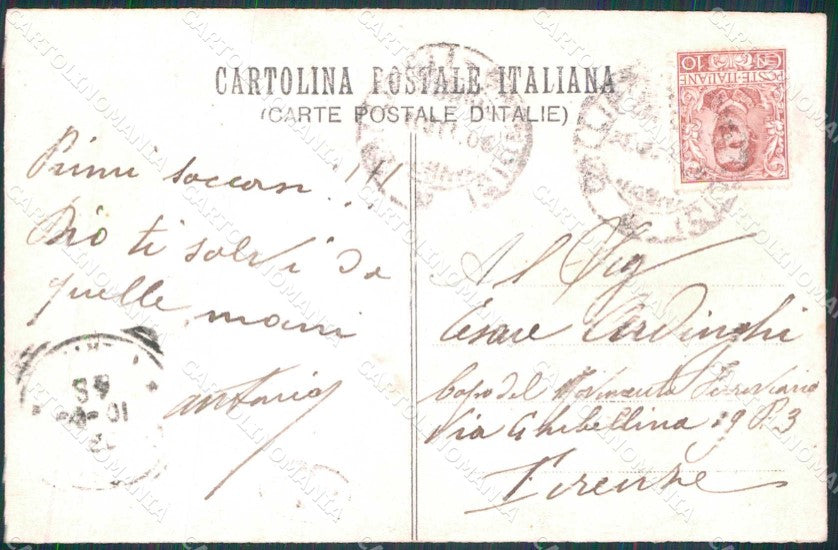 CARTOLINA POSTALE ITALIANA
(CARTE POSTALE D'ITALIE)
POSTE·ITALIANE
CEN. 10
Primi soccorsi !!!
Dio ti salvi da
quelle mani
Antonio
Al Sig
Cesare Ardinghi
Capo del Movimento Ferroviario
Via Ghibellina 19 P. 3
Firenze
CARTOLINOMANIA